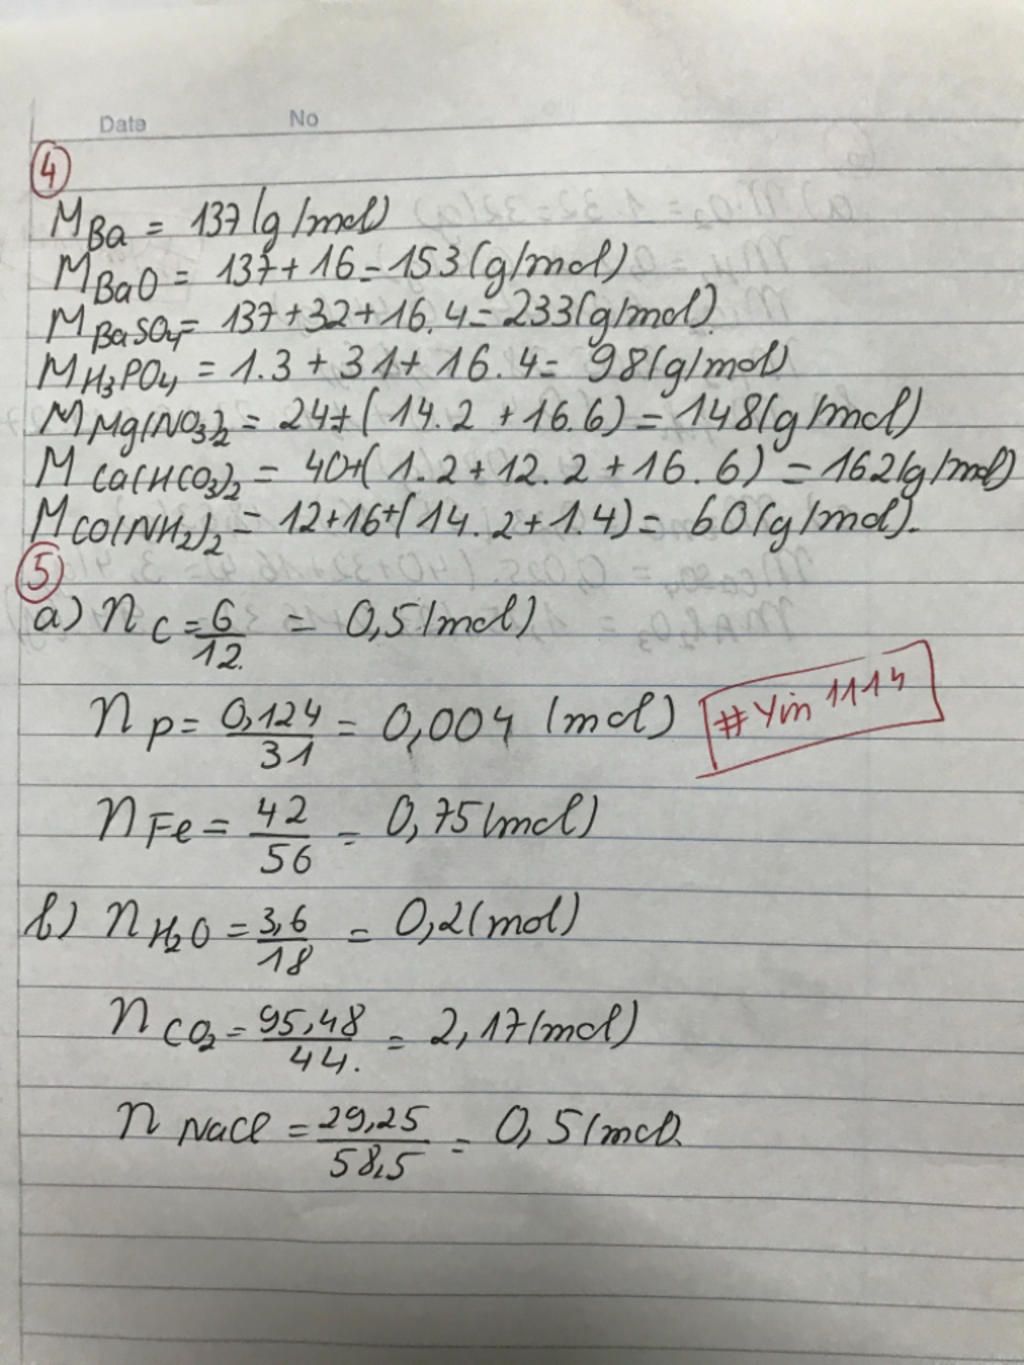 Date No
4
M Ba = 137(g/mol)
M BaO = 137+16=153(g/mol)
M BaSO4= 137+32+16.4=233(g/mol).
M H3PO4 = 1.3+31+16.4= 98(g/mol)
M Mg(NO3)2 = 24+(14.2+16.6)=148(g/mol)
M Ca(HCO3)2 = 40+(1.2+12.2+16.6)=162(g/mol)
M CO(NH2)2 = 12+16+(14.2+1.4)= 60(g/mol).
5
a) n C = 6/12. = 0,5(mol)
n P = 0,124/31 = 0,004 (mol)
#Yin 1114
n Fe = 42/56 = 0,75(mol)
b) n H2O = 3,6/18 = 0,2(mol)
n CO2 = 95,48/44. = 2,17(mol)
n NaCl = 29,25/58,5 = 0,5(mol).